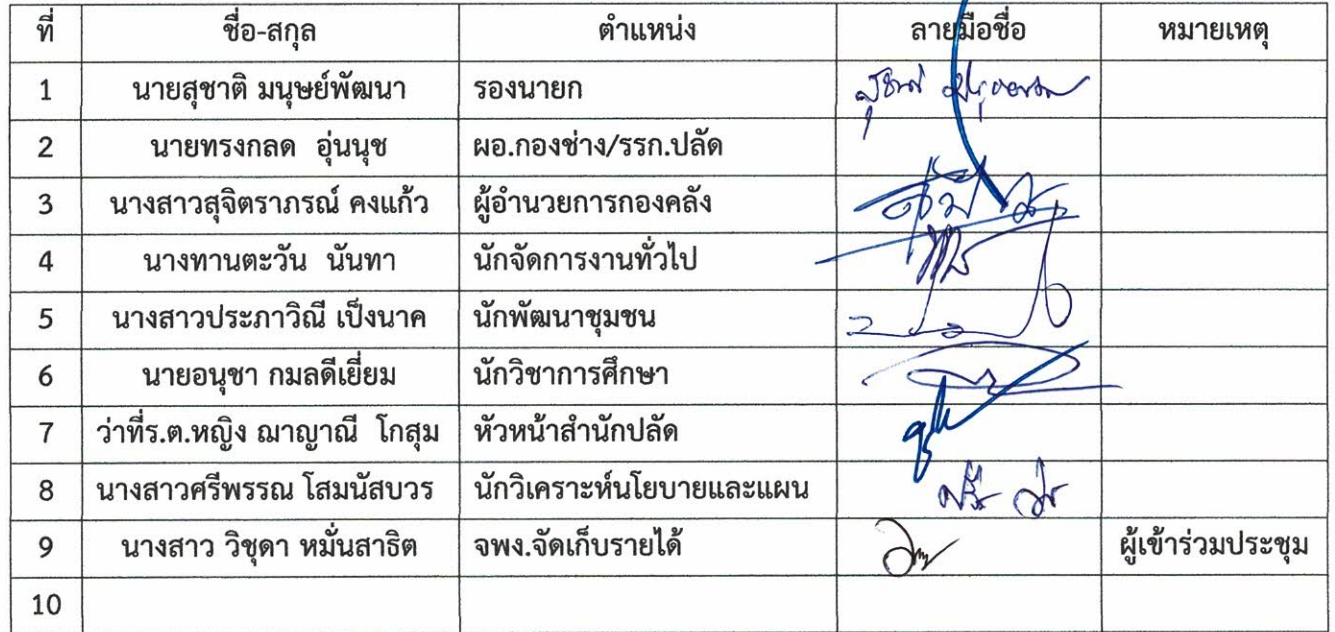 ที่ ชื่อ-สกุล ตำแหน่ง ลายมือชื่อ หมายเหตุ
1 นายสุชาติ มนุษย์พัฒนา รองนายก
2 นายทรงกลด อุ่นนุช ผอ.กองช่าง/รรก.ปลัด
3 นางสาวสุจิตราภรณ์ คงแก้ว ผู้อำนวยการกองคลัง
4 นางทานตะวัน นันทา นักจัดการงานทั่วไป
5 นางสาวประภาวิณี เป็งนาค นักพัฒนาชุมชน
6 นายอนุชา กมลดีเยี่ยม นักวิชาการศึกษา
7 ว่าที่ร.ต.หญิง ฌาญาณี โกสุม หัวหน้าสำนักปลัด
8 นางสาวศรีพรรณ โสมนัสบวร นักวิเคราะห์นโยบายและแผน
9 นางสาว วิชุดา หมั่นสาธิต จพง.จัดเก็บรายได้ ผู้เข้าร่วมประชุม
10